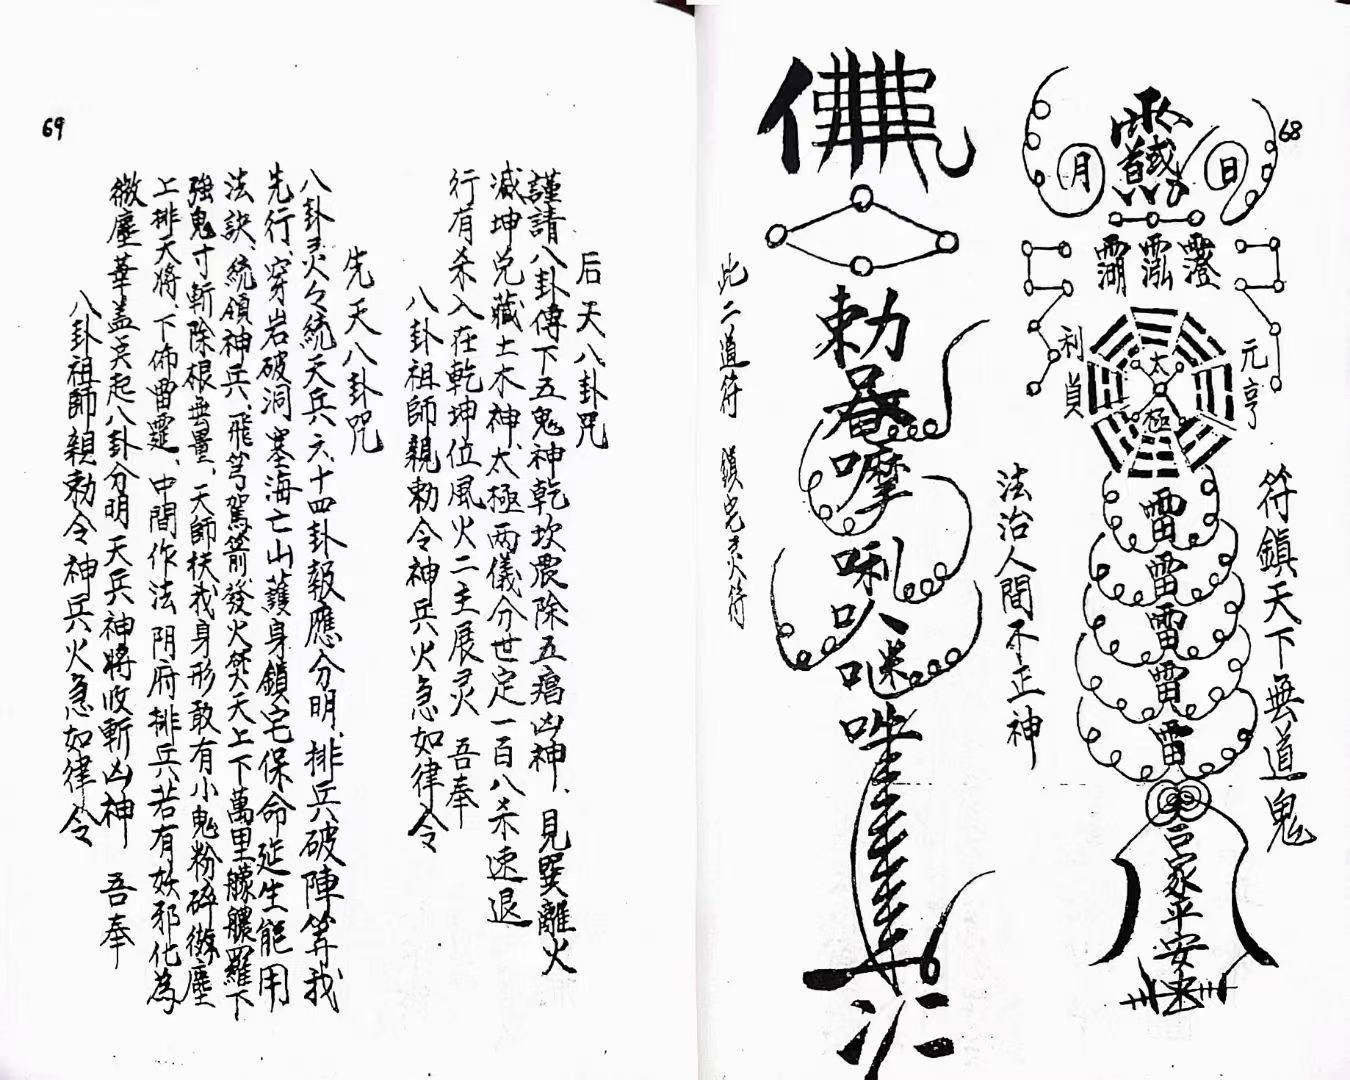 68
日
月
澄
泓
湖
元亨
利貞
太極
雷
雷
雷
雷
雷
合家平安
符鎮天下無道鬼
法治人間不正神
佛
勅
唵
嚒
唎
叭
咪
吽
此二道符 鎖宅灵符
69
后天八卦咒
謹請八卦傳下五鬼神乾坎震除五瘟凶神、見巽離火
滅坤兌藏土木神、太極两儀分世定一百八杀速退
行有杀入在乾坤位風火二主展灵 吾奉
八卦祖師親勅令神兵火急如律令
先天八卦咒
八卦灵火々統天兵六十四卦報應分明、排兵破陣等我
先行、穿岩破洞塞海亡山護身鎖宅保命延生能用
法訣、統領神兵、飛弓駕箭發火焚天上下萬里朦朧羅下
強鬼寸斬除根無量、天師扶我身形敢有小鬼粉碎微塵
上排天将、下佈雷霆、中間作法阴府排兵若有妖邪化為
微塵華盖灵起八卦分明天兵神將收斬凶神 吾奉
八卦祖師親勅令神兵火急如律令